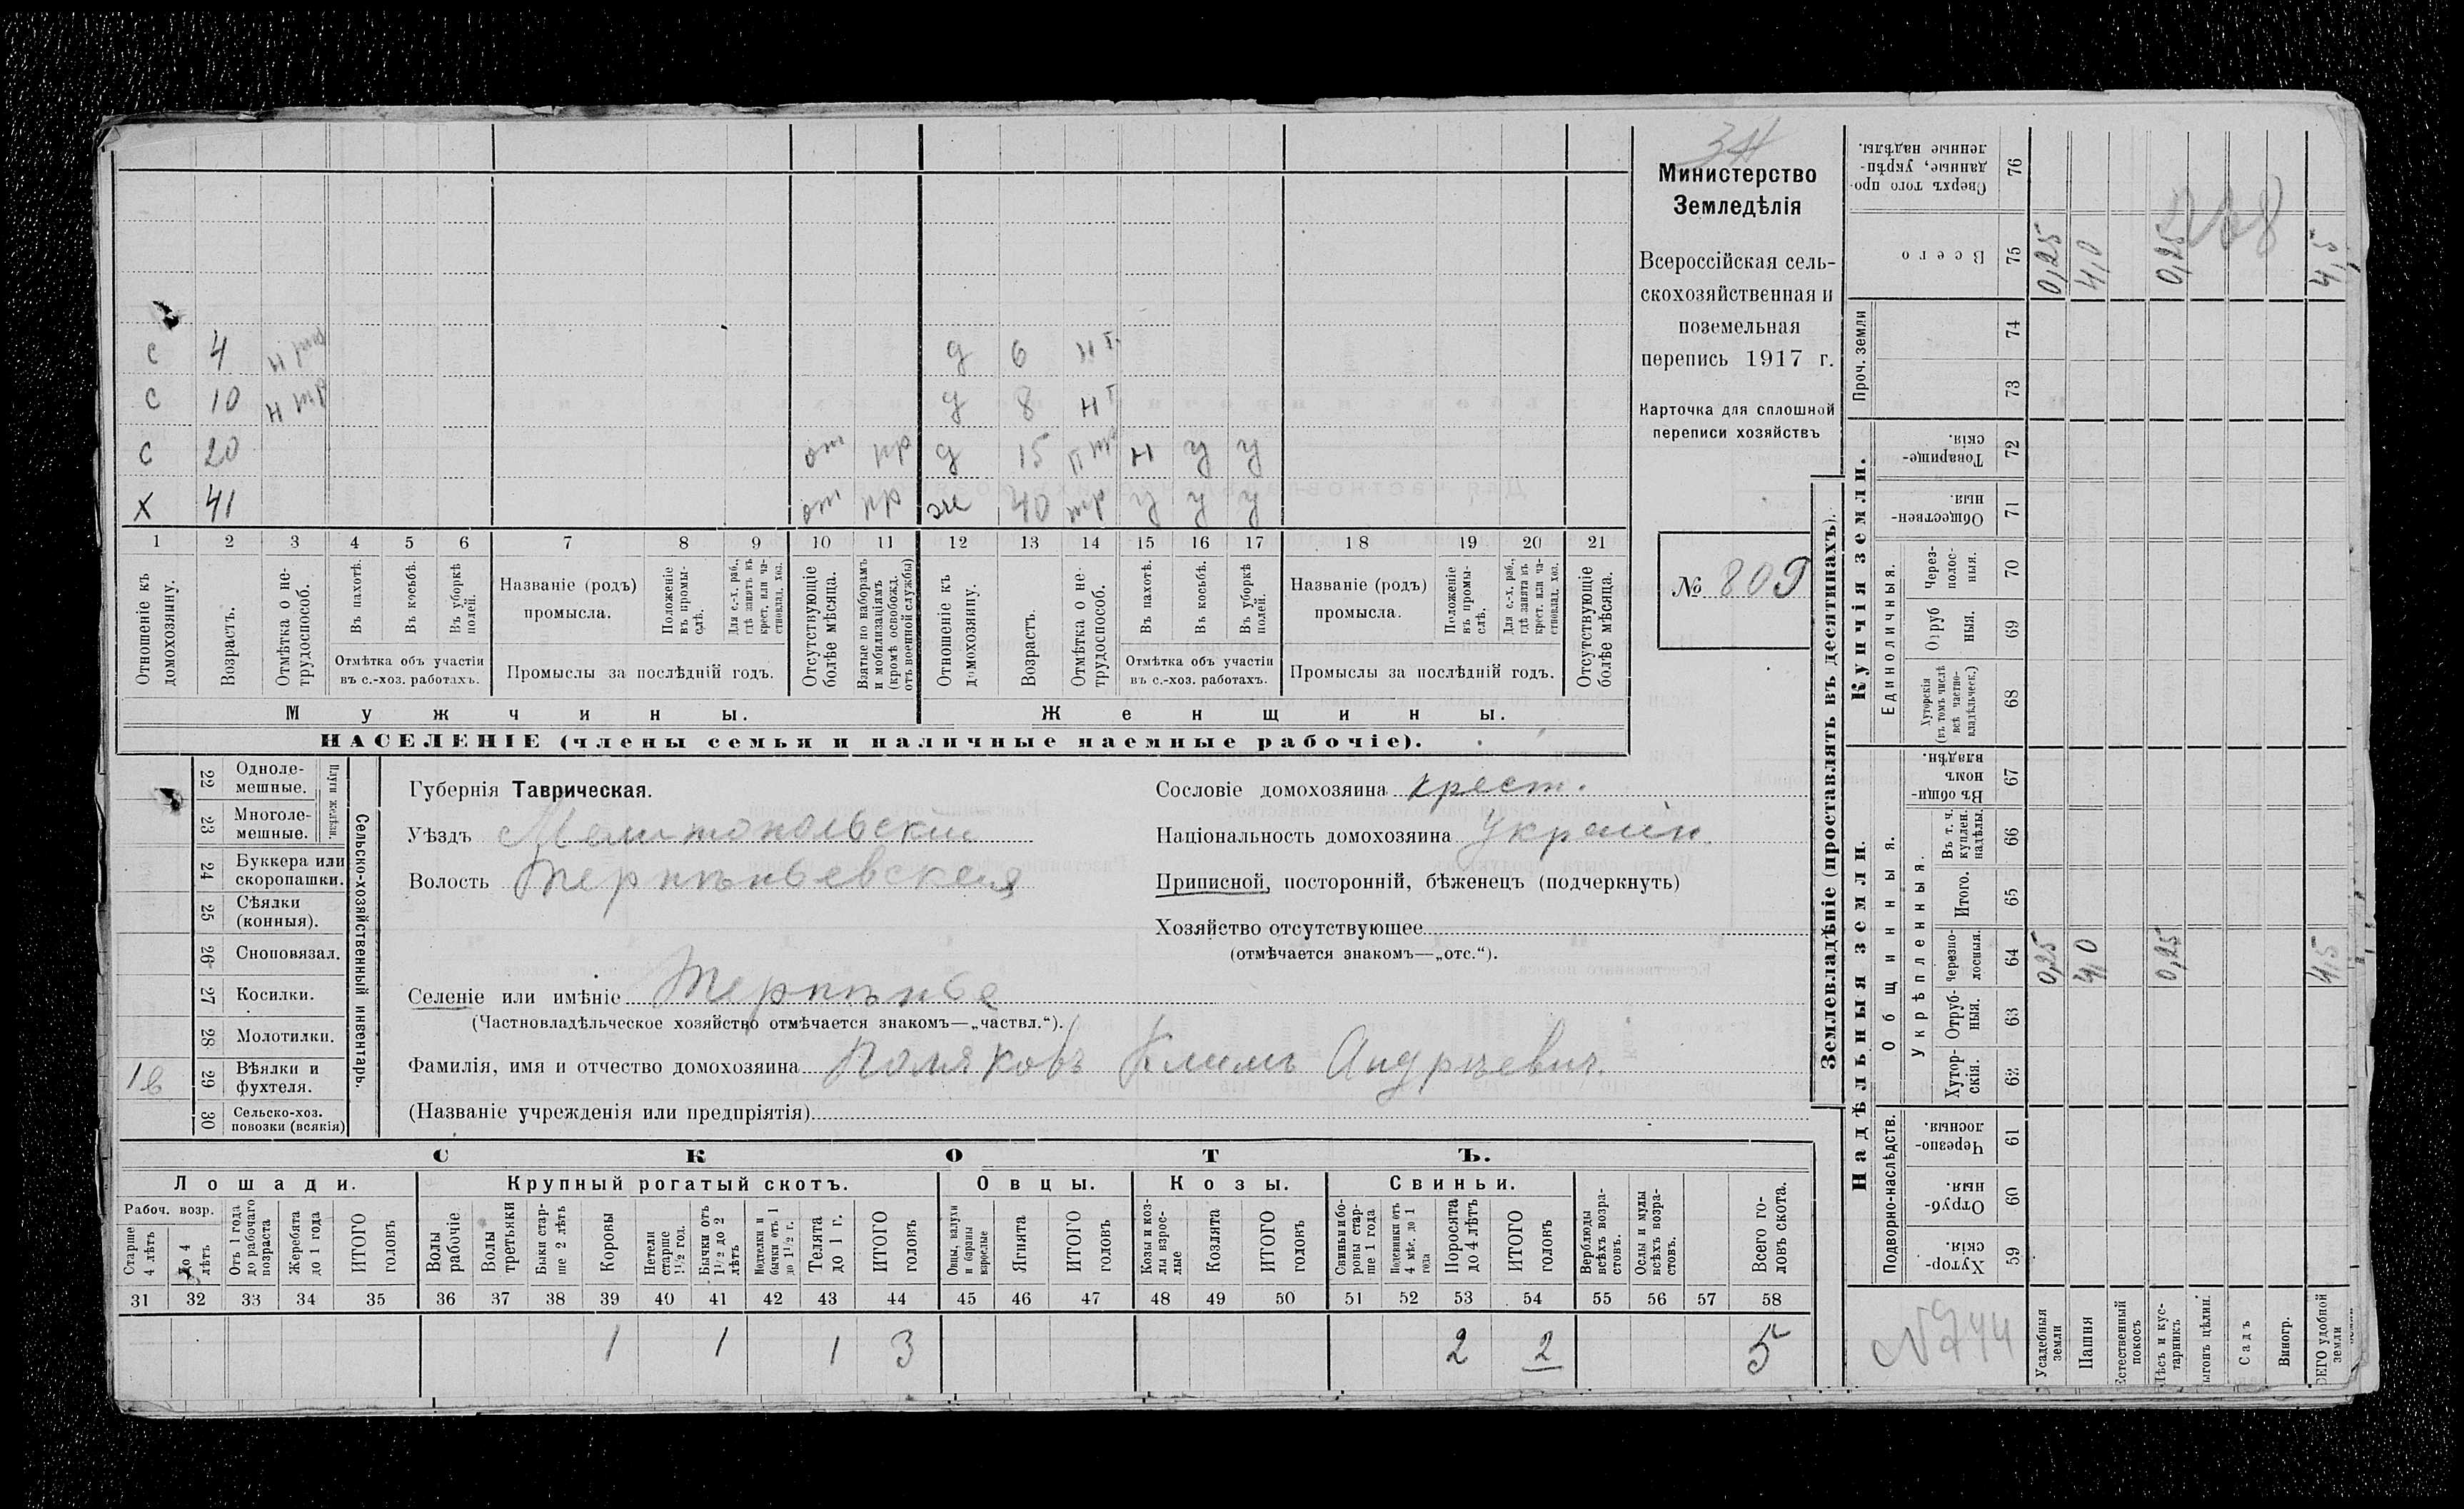 с 4 н тр д 6 н т
с 10 н тр д 8 н т
с 20 от пр д 15 п тр н у у
х 41 от пр ж 40 тр у у у
1 2 3 4 5 6 7 8 9 10 11 12 13 14 15 16 17 18 19 20 21
Отношеніе къ домохозяину.
Возрастъ.
Отмѣтка о нетрудоспособ.
Въ пахотѣ.
Въ косьбѣ.
Въ уборкѣ полей.
Отмѣтка объ участіи
въ с.-хоз. работахъ.
Названіе (родъ)
промысла.
Положеніе въ промыслѣ.
Для с.-х. раб., гдѣ занятъ въ крест. или частновлад. хоз.
Промыслы за послѣдній годъ.
Отсутствующіе болѣе мѣсяца.
Взятые по наборамъ и мобилизаціямъ (кромѣ освобожд. отъ военной службы)
Отношеніе къ домохозяину.
Возрастъ.
Отмѣтка о нетрудоспособ.
Въ пахотѣ.
Въ косьбѣ.
Въ уборкѣ полей.
Отмѣтка объ участіи
въ с.-хоз. работахъ.
Названіе (родъ)
промысла.
Положеніе въ промыслѣ.
Для с.-х. раб., гдѣ занята въ крест. или частновлад. хоз.
Промыслы за послѣдній годъ.
Отсутствующіе болѣе мѣсяца.
Мужчины. Женщины.
НАСЕЛЕНІЕ (члены семьи и наличные наемные рабочіе).
Министерство
Земледѣлія
Всероссійская сель-
скохозяйственная и
поземельная
перепись 1917 г.
Карточка для сплошной
переписи хозяйствъ
№ 809
Сельско-хозяйственный инвентарь.
Плуги желѣзн.
22 Одноле-
мешные.
23 Многоле-
мешные.
24 Буккера или
скоропашки.
25 Сѣялки
(конныя).
26 Сноповязал.
27 Косилки.
28 Молотилки.
1в 29 Вѣялки и
фухтеля.
30 Сельско-хоз.
повозки (всякія)
Губернія Таврическая.
Уѣздъ Мелитопольскій
Волость Терпѣньевская
Сословіе домохозяина крест.
Національность домохозяина Украин.
Приписной, посторонній, бѣженецъ (подчеркнуть)
Хозяйство отсутствующее
(отмѣчается знакомъ—„отс.“).
Селеніе или имѣніе Терпѣнье
(Частновладѣльческое хозяйство отмѣчается знакомъ—„частвл.“).
Фамилія, имя и отчество домохозяина Поляковъ Климъ Андрѣевич.
(Названіе учрежденія или предпріятія)
СКОТЪ.
Лошади. Крупный рогатый скотъ. Овцы. Козы. Свиньи.
Рабоч. возр.
Старше 4 лѣтъ
До 4 лѣтъ
Отъ 1 года до рабочаго возраста
Жеребята до 1 года
ИТОГО головъ
Волы рабочіе
Волы третьяки
Быки старше 2 лѣтъ
Коровы
Нетели старше 1½ год.
Бычки отъ 1½ до 2 лѣтъ
Подтелки и бычки отъ 1 до 1½ г.
Телята до 1 г.
ИТОГО головъ
Овцы, валухи и бараны взрослые
Ягнята
ИТОГО головъ
Козы и козлы взрослые
Козлята
ИТОГО головъ
Свиньи и боровы старше 1 года
Подсвинки отъ 4 мѣс. до 1 года
Поросята до 4 лѣтъ
ИТОГО головъ
Верблюды всѣхъ возрастовъ.
Ослы и мулы всѣхъ возрастовъ.
Всего головъ скота.
31 32 33 34 35 36 37 38 39 40 41 42 43 44 45 46 47 48 49 50 51 52 53 54 55 56 57 58
1 1 1 3 2 2 5
Землевладѣніе (проставлять въ десятинахъ).
Надѣльныя земли. Купчія земли. Проч. земли
Подворно-наслѣдств.
Общинныя.
Укрѣпленныя.
Единоличныя.
Сверхъ того проданные, укрѣпленные надѣлы. 76
Всего 75 0,25 4,0 0,25 4,5
74
73
Товарищескія. 72
Общественныя. 71
Черезполосныя. 70
Отрубныя. 69
Хуторскія (въ томъ числѣ всѣ частновладѣльческ.) 68
Въ общинномъ владѣн. 67
Въ т. ч. куплен. надѣлы. 66
Итого. 65
Черезполосныя. 64 0,25 4,0 0,25 4,5
Отрубныя. 63
Хуторскія. 62
Черезполосныя. 61
Отрубныя. 60
Хуторскія. 59
N 744
Усадебныя земли
Пашня
Естественный покосъ
Лѣсъ и кустарникъ
Садъ
Виногр.